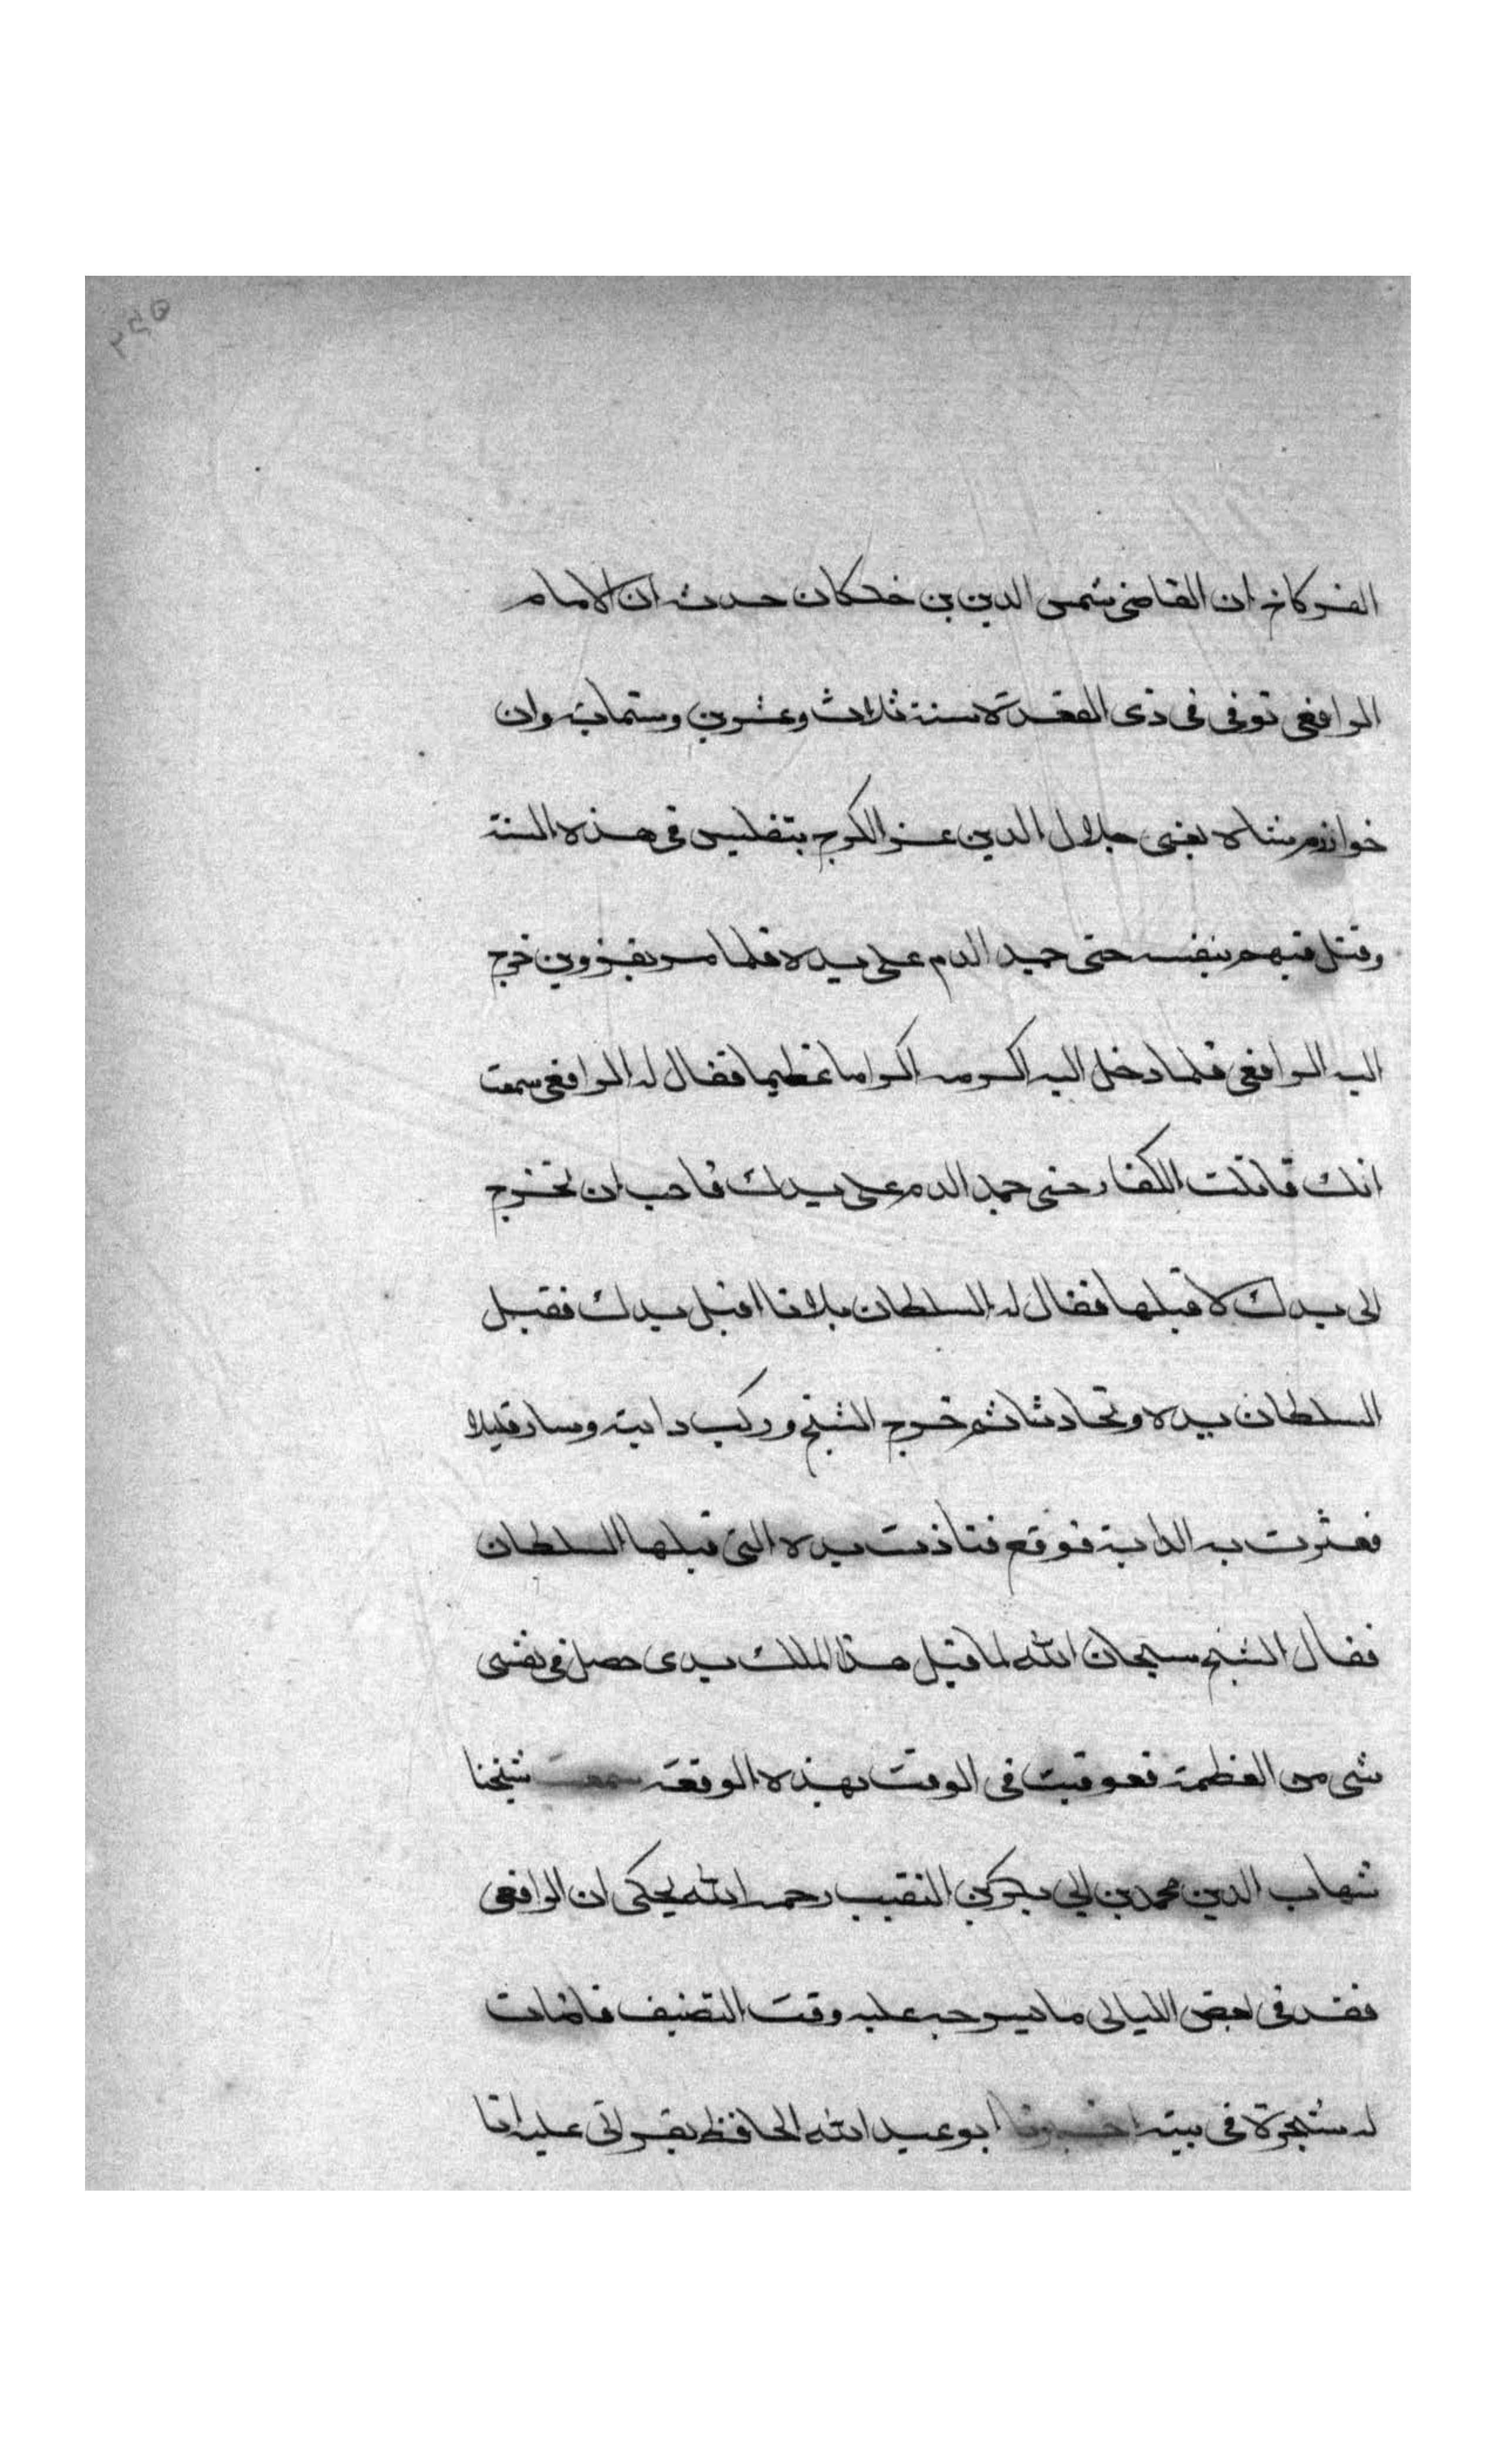 الفركاح ان القاضى شمس الدين بن خلكان حدثه ان الامام
الرافعى توفى فى ذى القعدة سنة ثلاث وعشرين وستماية وان
خوارزم شاه يعنى جلال الدين غزا الكرج بتفليس فى هذه السنة
وقتل فيهم بنفسه حتى جمد الدم على يده فلما مر بقزوين خرج
اليه الرافعى فلما دخل اليه اكرمه اكراما عظيما فقال له الرافعى سمعت
انك قاتلت الكفار حتى جمد الدم على يدك فاحب ان تخرج
الى يدك لاقبلها فقال له السلطان بل انا اقبل يدك فقبل
السلطان يده وتحادثا ثم خرج الشيخ وركب دابته وسار قليلا
فعثرت به الدابة فوقع فتاذت يده التى قبلها السلطان
فقال الشيخ سبحان الله لما قبل هذا الملك يدى حصل فى نفسى
شى من العظمة فعوقبت فى الوقت بهذه الوقعة سمعت شيخنا
شهاب الدين محمد بن ابى بكر بن النقيب رحمه الله يحكى ان الرافعى
فقد فى بعض الليالى ما يسرجه عليه وقت التصنيف فاضات
له شجرة فى بيته اخبرنا ابو عبد الله الحافظ بقراتى عليه انا